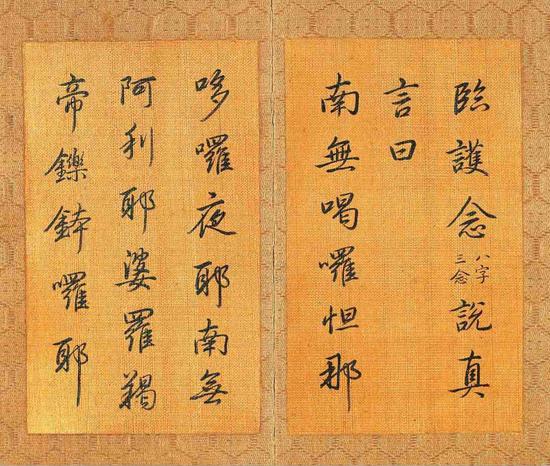 臨護念八字三念說真
言曰
南無喝囉怛那
哆囉夜耶南無
阿利耶婆羅羯
帝鑠鉢囉耶